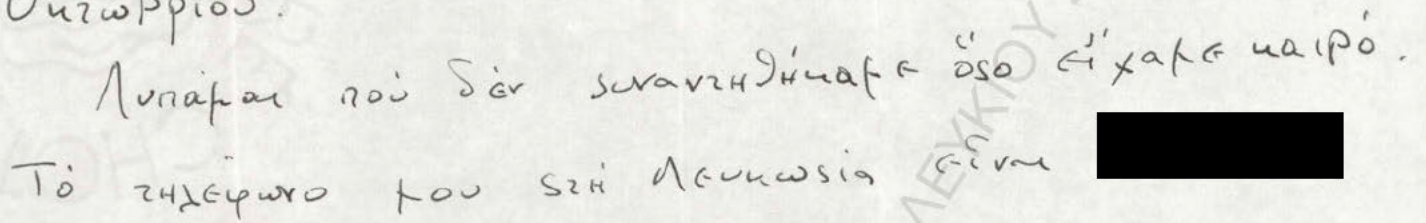 Ὀκτωβρίου.
Λυπᾶμαι ποὺ δὲν συναντηθήκαμε ὅσο εἴχαμε καιρό.
Τὸ τηλέφωνο μου στὴ Λευκωσία εἶναι